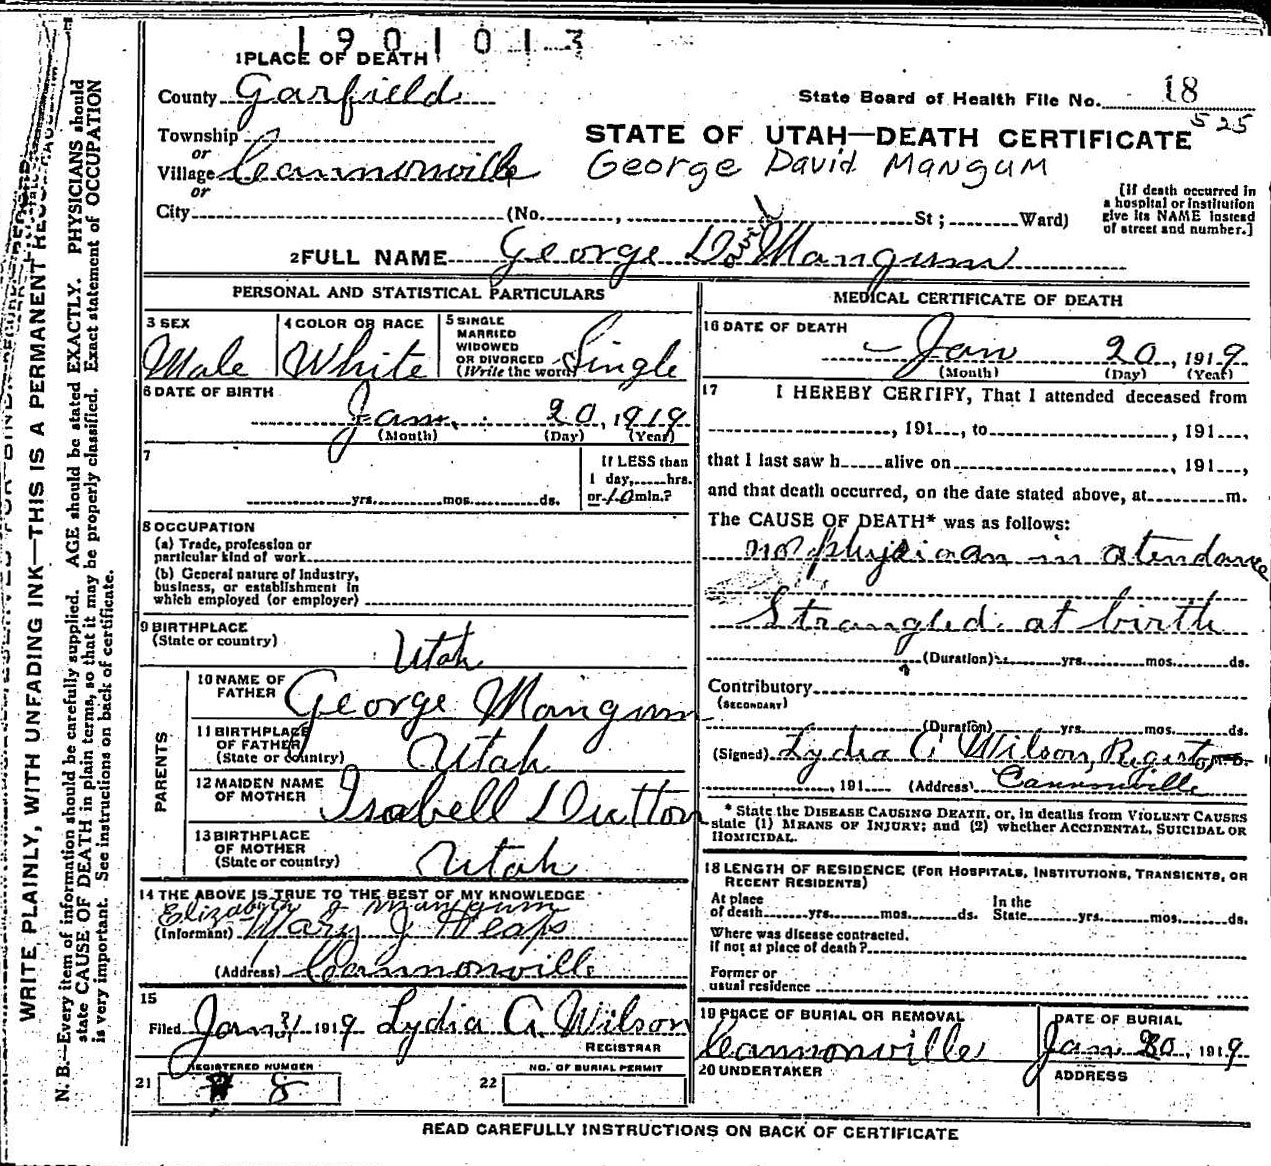 1901013
1 PLACE OF DEATH
County Garfield
State Board of Health File No. 18
525
Township
or
Village Cannonville
or
City (No. , St ; Ward)
STATE OF UTAH—DEATH CERTIFICATE
George David Mangum
[If death occurred in
a hospital or institution
give its NAME instead
of street and number.]
2 FULL NAME George D. David Mangum
PERSONAL AND STATISTICAL PARTICULARS
3 SEX
Male
4 COLOR OR RACE
White
5 SINGLE
MARRIED
WIDOWED
OR DIVORCED
(Write the word)
Single
6 DATE OF BIRTH
Jan. 20, 1919
(Month) (Day) (Year)
7
yrs. mos. ds.
If LESS than
1 day, hrs.
or 10 min.?
8 OCCUPATION
(a) Trade, profession or
particular kind of work
(b) General nature of Industry,
business, or establishment in
which employed (or employer)
9 BIRTHPLACE
(State or country)
Utah
PARENTS
10 NAME OF
FATHER
George Mangum
11 BIRTHPLACE
OF FATHER
(State or country)
Utah
12 MAIDEN NAME
OF MOTHER
Isabell Dutton
13 BIRTHPLACE
OF MOTHER
(State or country)
Utah
14 THE ABOVE IS TRUE TO THE BEST OF MY KNOWLEDGE
Elizabeth J Mangum
(Informant) Mary J Heaps
(Address) Cannonville
15
Filed Jan 31 1919 Lydia A. Wilson
REGISTRAR
21 REGISTERED NUMBER
# 8
22 NO. OF BURIAL PERMIT
MEDICAL CERTIFICATE OF DEATH
16 DATE OF DEATH
Jan 20, 1919
(Month) (Day) (Year)
17 I HEREBY CERTIFY, That I attended deceased from
, 191 , to , 191 ,
that I last saw h alive on , 191 ,
and that death occurred, on the date stated above, at m.
The CAUSE OF DEATH* was as follows:
no physician in atendance
Strangled at birth
(Duration) yrs. mos. ds.
Contributory
(SECONDARY)
(Duration) yrs. mos. ds.
(Signed) Lydia A Wilson, Registor M.D.
, 191 (Address) Cannonville
* State the DISEASE CAUSING DEATH, or, in deaths from VIOLENT CAUSES
state (1) MEANS OF INJURY; and (2) whether ACCIDENTAL, SUICIDAL OR
HOMICIDAL.
18 LENGTH OF RESIDENCE (FOR HOSPITALS, INSTITUTIONS, TRANSIENTS, OR
RECENT RESIDENTS)
At place
of death yrs. mos. ds.
In the
State yrs. mos. ds.
Where was disease contracted.
if not at place of death?
Former or
usual residence
19 PLACE OF BURIAL OR REMOVAL
Cannonville
DATE OF BURIAL
Jan 20, 1919
20 UNDERTAKER
ADDRESS
READ CAREFULLY INSTRUCTIONS ON BACK OF CERTIFICATE
WRITE PLAINLY, WITH UNFADING INK—THIS IS A PERMANENT RECORD
N. B.—Every item of information should be carefully supplied. AGE should be stated EXACTLY. PHYSICIANS should
state CAUSE OF DEATH in plain terms, so that it may be properly classified. Exact statement of OCCUPATION
is very important. See instructions on back of certificate.